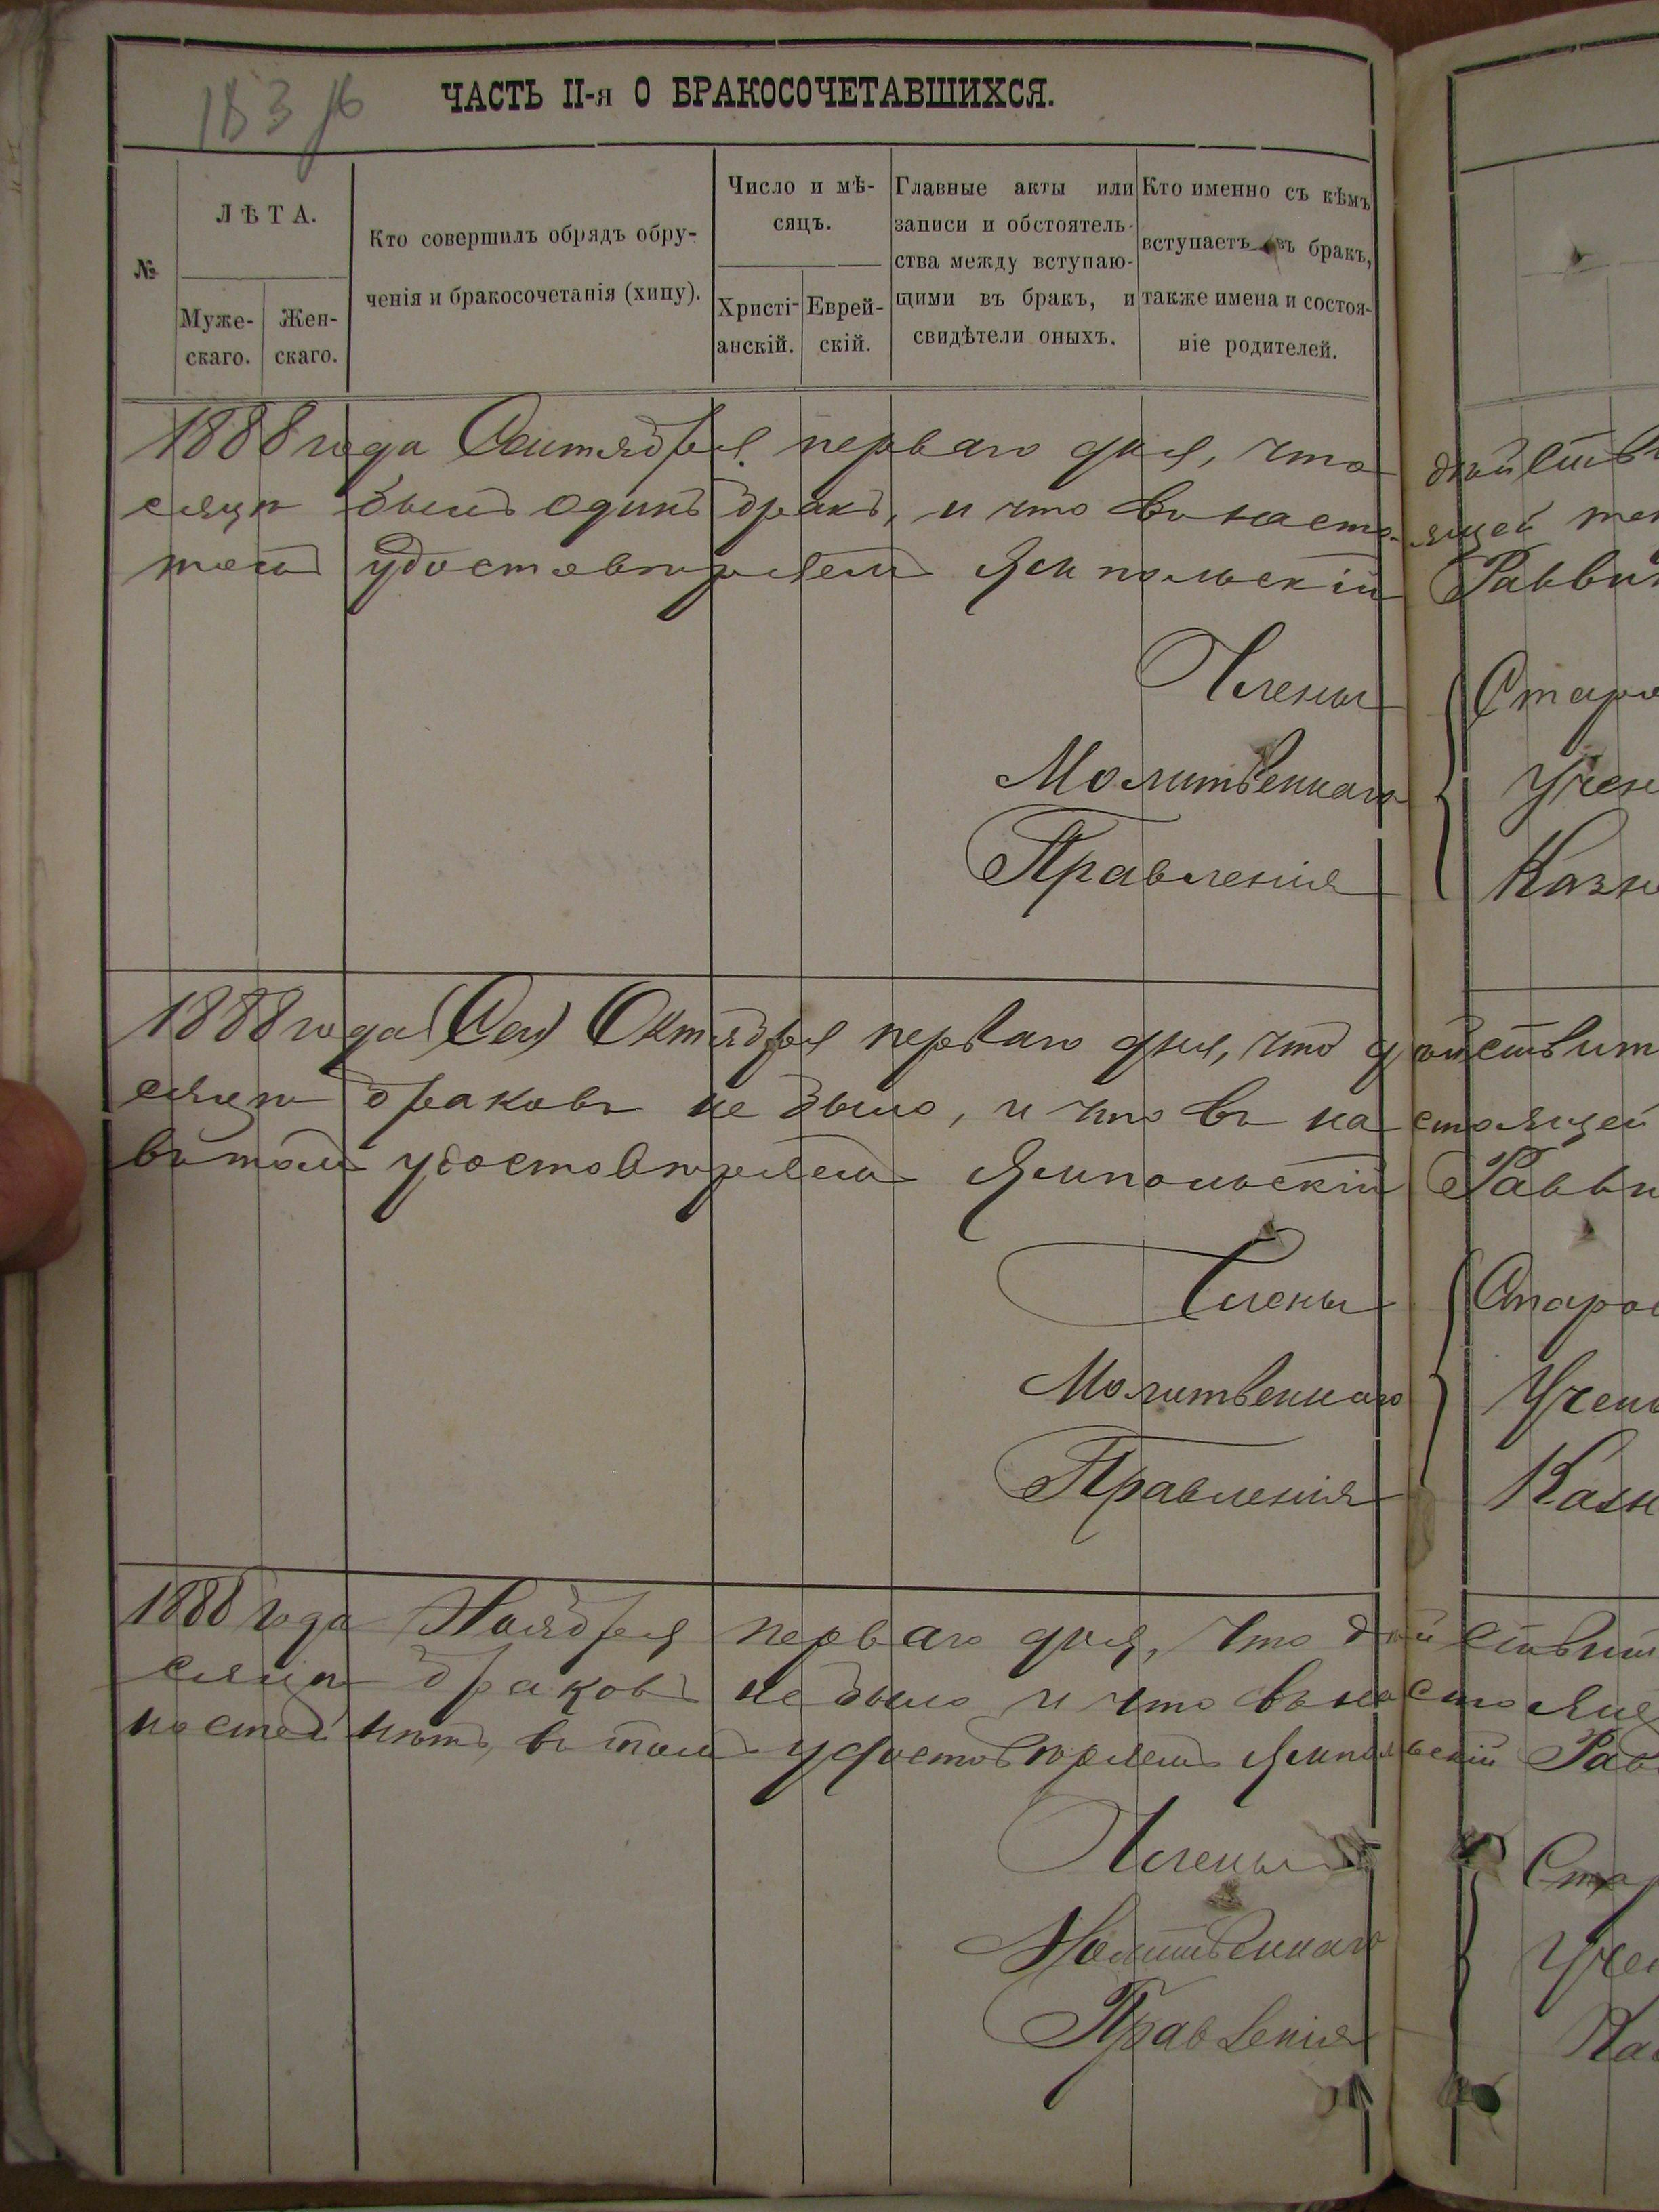 ЧАСТЬ II-я О БРАКОСОЧЕТАВШИХСЯ.
№
ЛѢТА.
Муже-
скаго.
Жен-
скаго.
Кто совершилъ обрядъ обру-
ченія и бракосочетанія (хипу).
Число и мѣ-
сяцъ.
Христі-
анскій.
Еврей-
скій.
Главные акты или
записи и обстоятель-
ства между вступаю-
щими въ бракъ, и
свидѣтели оныхъ.
Кто именно съ кѣмъ
вступаетъ въ бракъ,
также имена и состоя-
ніе родителей.
1888 года Сентября перваго дня, что дѣйств
сяцѣ былъ одинъ бракъ, и что въ настоящей
томъ удостовѣряемъ Ямпольскій Равви
Члены
Молитвеннаго
Правленія
Старо
Учен
Казн
1888 года (Сен) Октября перваго дня, что дѣйствит
сяцѣ браковъ не было, и что въ настоящей
въ томъ удостовѣряемъ Ямпольскій Равви
Члены
Молитвеннаго
Правленія
Старо
Учен
Казн
1888 года Ноября перваго дня, что дѣйствит
сяцѣ браковъ не было и что въ настоящ
ностей нѣтъ, въ томъ удостовѣряемъ Ямпольскій Рав
Члены
Молитвеннаго
Правленія
Стар
Учен
Каз